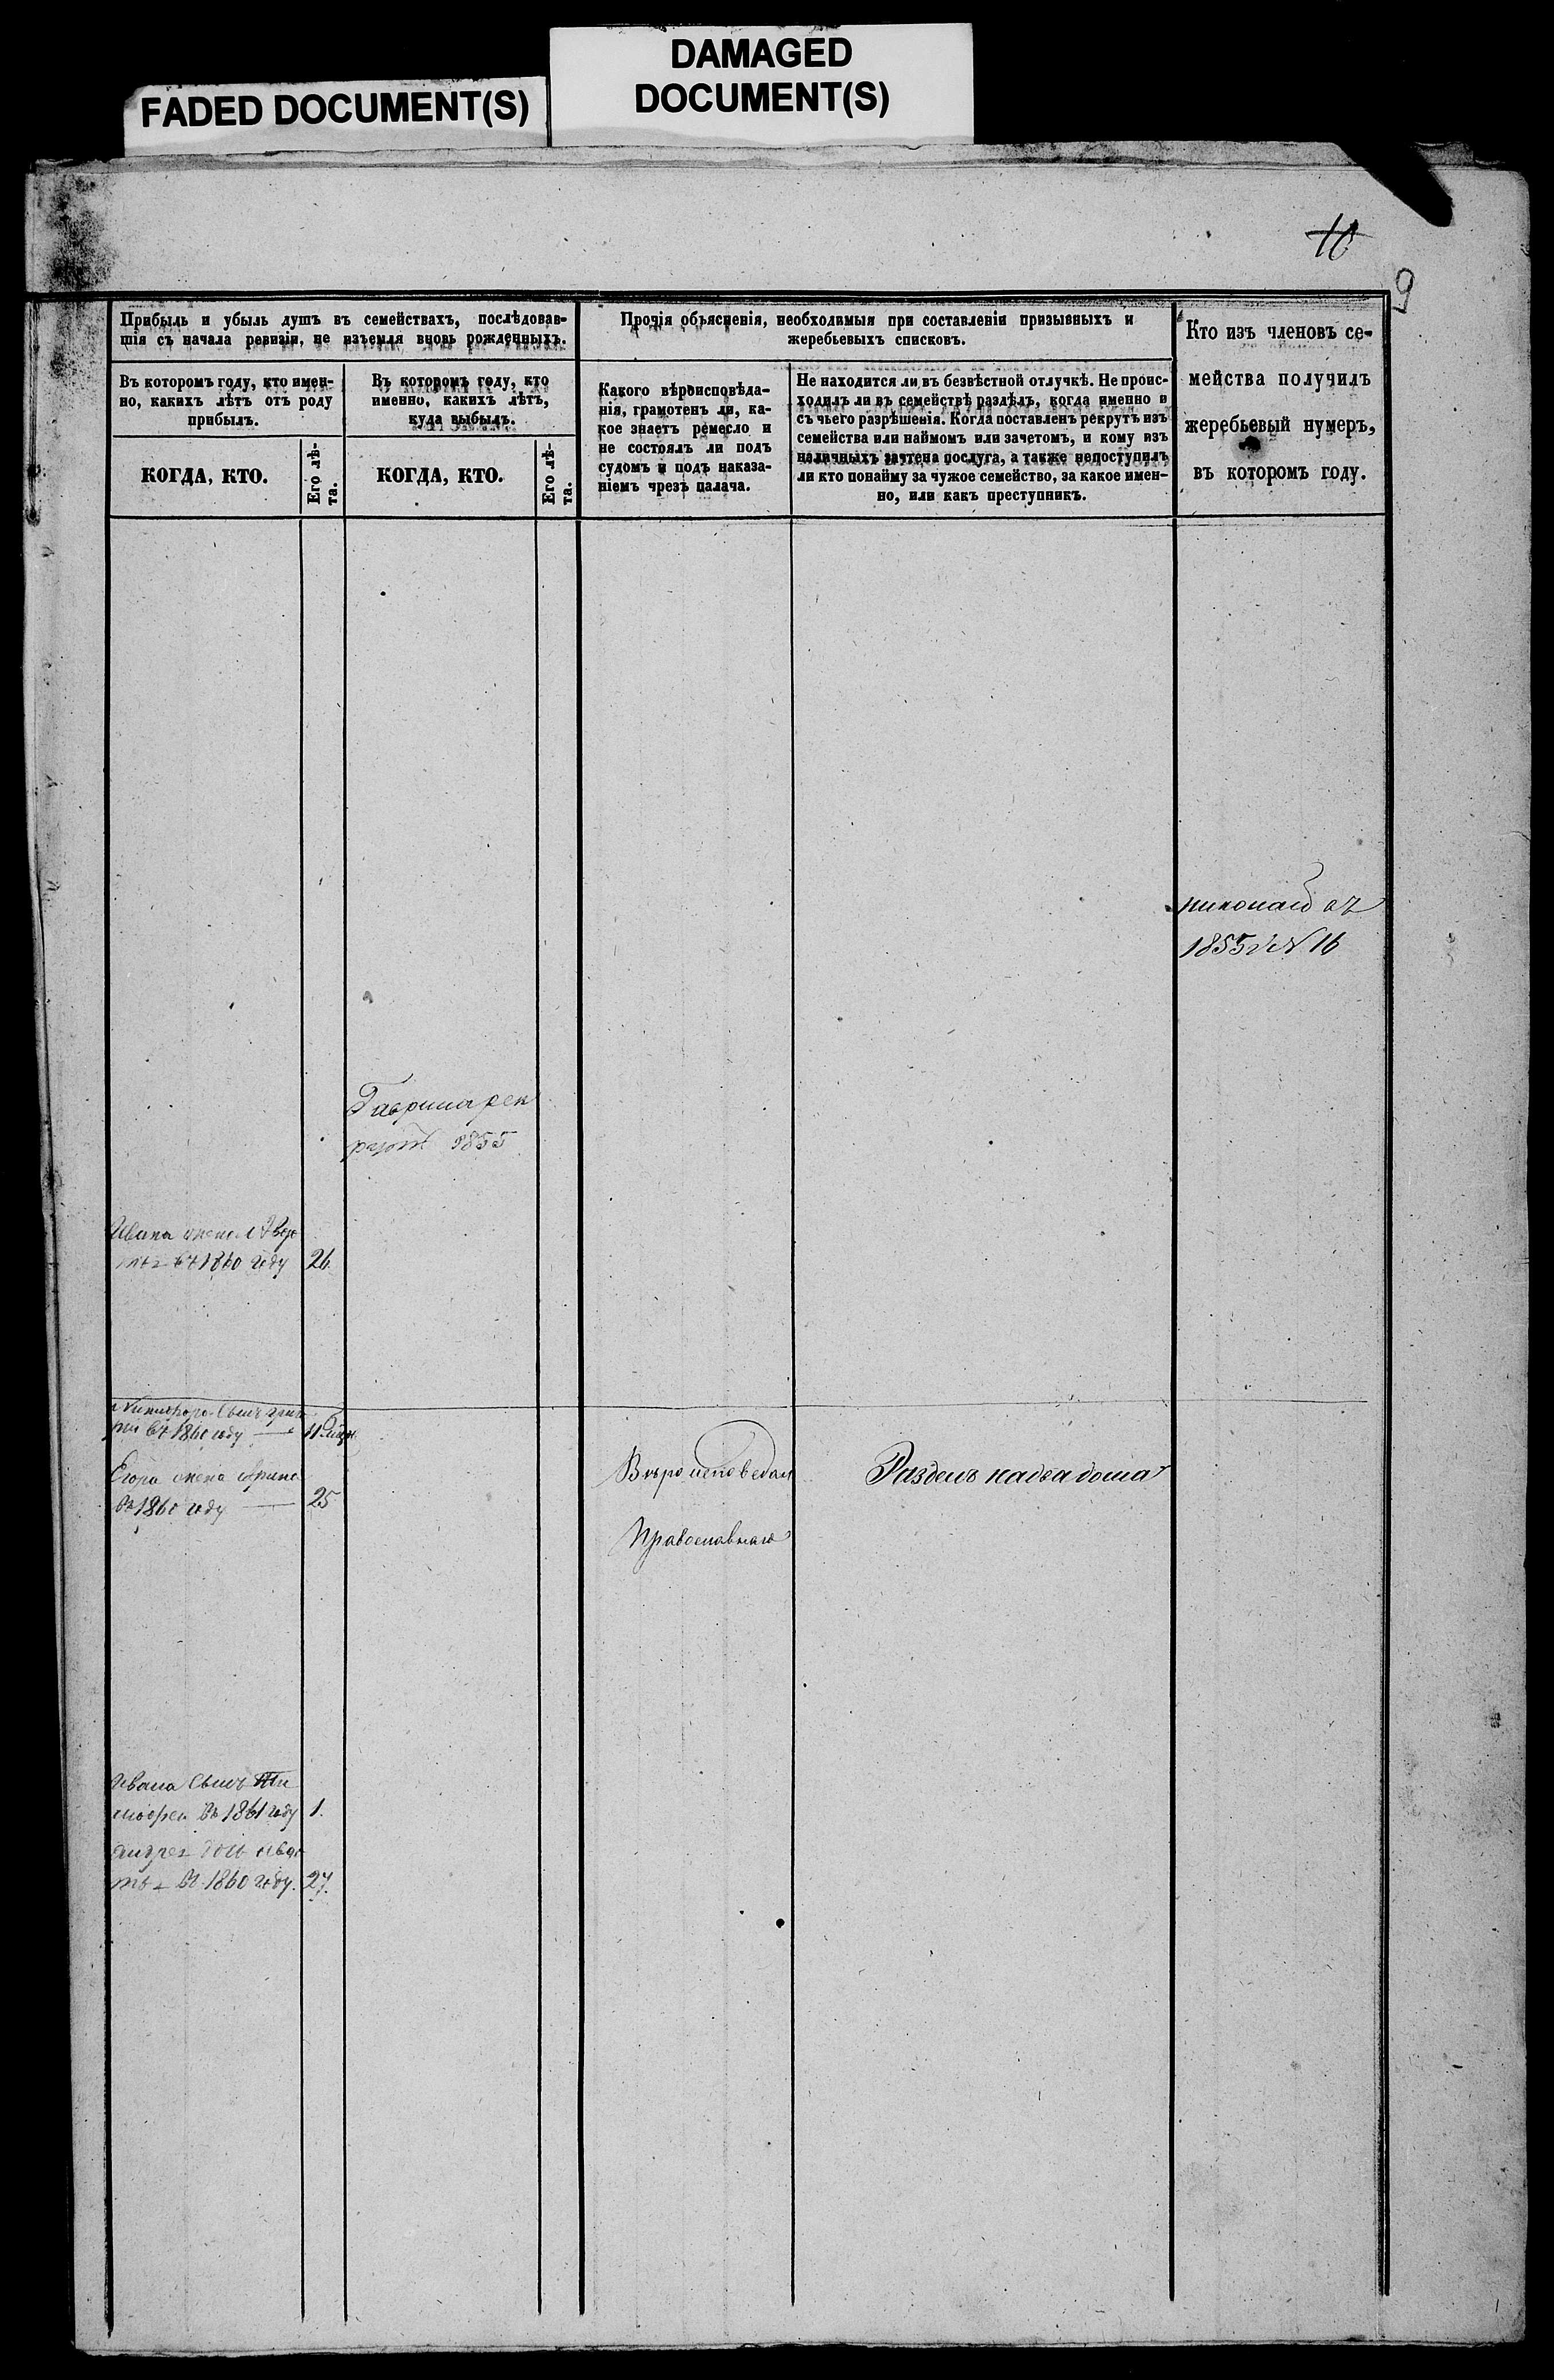 FADED DOCUMENT(S)
DAMAGED
DOCUMENT(S)
10
9
Прибыль и убыль душъ въ семействахъ, послѣдовав-
шія съ начала ревизіи, не изъемля вновь рожденныхъ.
Прочія объясненія, необходимыя при составленіи призывныхъ и
жеребьевыхъ списковъ.
Кто изъ членовъ се-
мейства получилъ
жеребьевый нумеръ,
въ которомъ году.
Въ которомъ году, кто имен-
но, какихъ лѣтъ отъ роду
прибылъ.
Въ которомъ году, кто
именно, какихъ лѣтъ,
куда выбылъ.
Какого вѣроисповѣда-
нія, грамотенъ ли, ка-
кое знаетъ ремесло и
не состоялъ ли подъ
судомъ и подъ наказа-
ніемъ чрезъ палача.
Не находится ли въ безвѣстной отлучкѣ. Не проис-
ходилъ ли въ семействѣ раздѣлъ, когда именно и
съ чьего разрѣшенія. Когда поставленъ рекрутъ изъ
семейства или наймомъ или зачетомъ, и кому изъ
наличныхъ зачтена послуга, а также непоступилъ
ли кто понайму за чужое семейство, за какое имен-
но, или какъ преступникъ.
КОГДА, КТО.
Его лѣ-
та.
КОГДА, КТО.
Его лѣ-
та.
николай въ
1855 г N 16
Гаврила рек
рутъ 1855
Ивана жена
въ 1860 году 26.
сынъ
въ 1860 году 11
Егора жена Арина
въ 1860 году 25
Вѣро исповедан
Раздела
Православнаго
Ивана сынъ Ти
мофеи въ 1861 году 1.
въ 1860 году. 27.